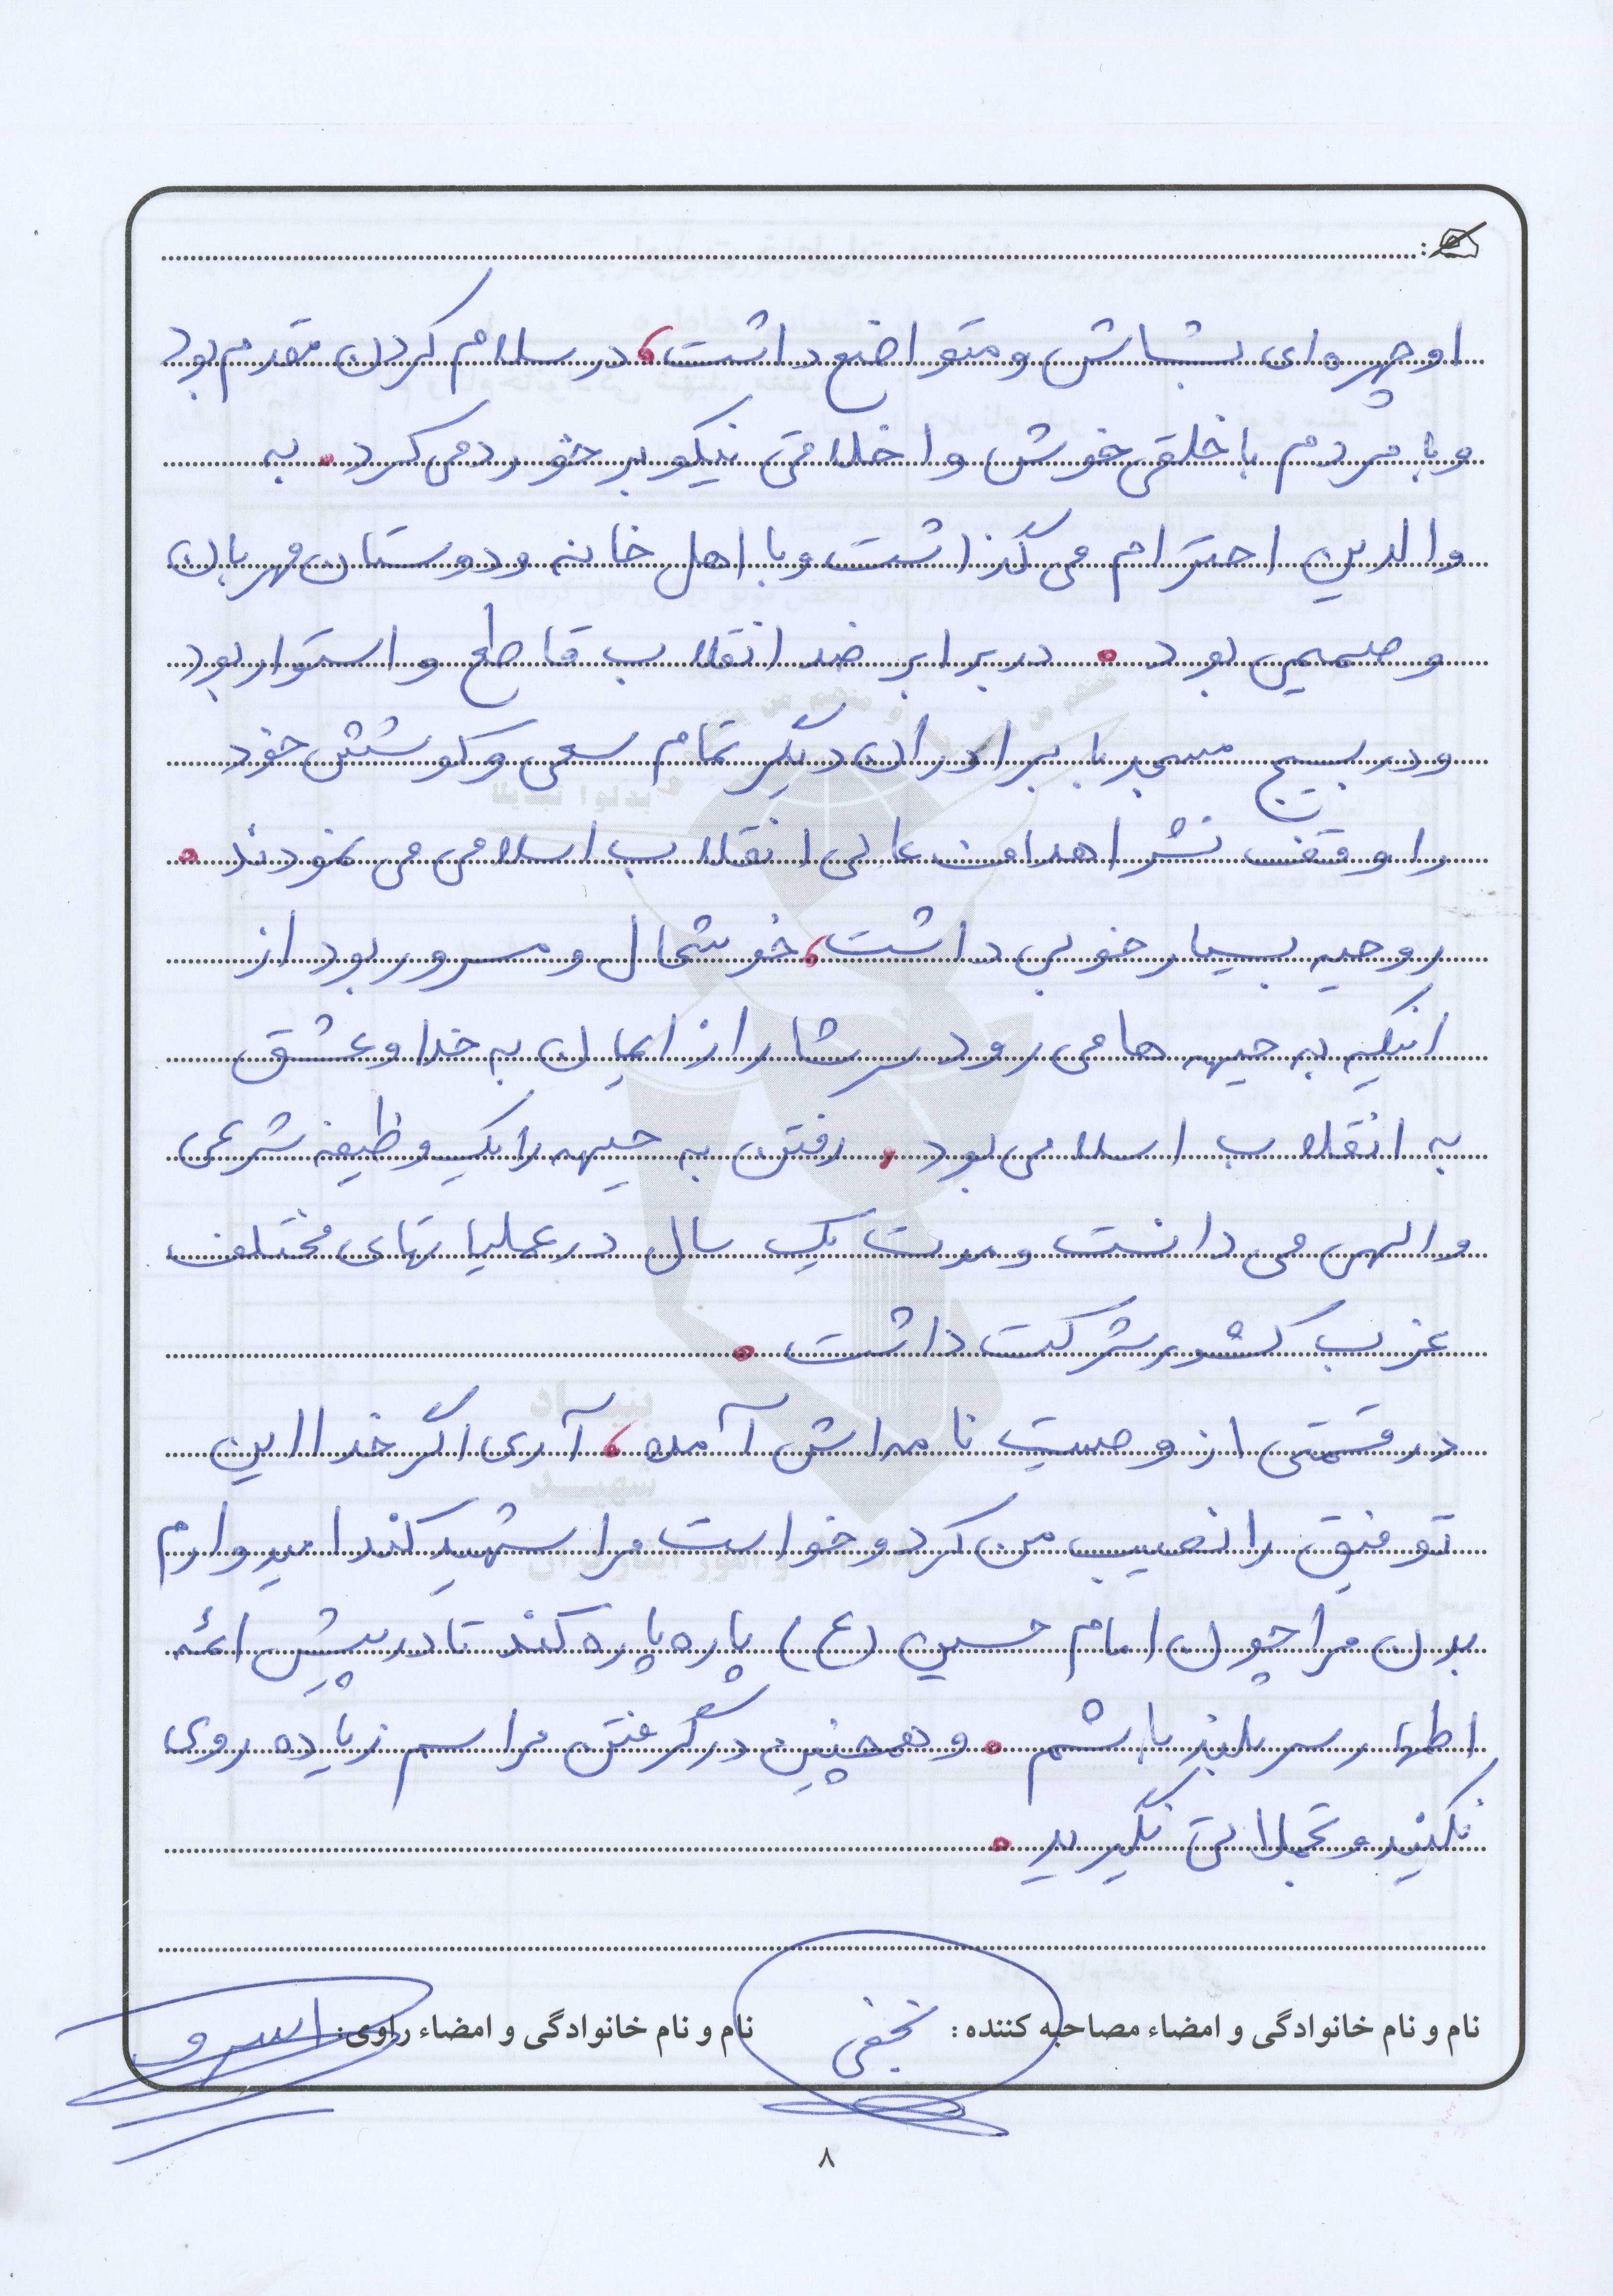 او چهره‌ای بشاش و متواضع داشت، در سلام کردن مقدم بود
و با مردم با خلقی خوش و اخلاقی نیکو برخورد می کرد. به
والدین احترام می گذاشت و با اهل خانه و دوستان مهربان
و صمیمی بود. در برابر ضد انقلاب قاطع و استوار بود
و در بسیج مسجد با برادران دیگر تمام سعی و کوشش خود
را وقف نشر اهداف عالی انقلاب اسلامی می نمودند.
روحیه بسیار خوبی داشت، خوشحال و مسرور بود از
اینکه به جبهه ها می رود سرشار از ایمان به خدا و عشق
به انقلاب اسلامی بود. رفتن به جبهه را یک وظیفه شرعی
و الهی می دانست و مدت یک سال در عملیاتهای مختلف
غرب کشور شرکت داشت.
در قسمتی از وصیت نامه اش آمده، آری اگر خدا این
توفیق را نصیب من کرد و خواست مرا شهید کند امیدوارم
بدن مرا چون امام حسین (ع) پاره پاره کند تا در پیش ائمه
اطهار سربلند باشم. و همچنین در گرفتن مراسم زیاده روی
نکنید و تجملاتی نگیرید.
نام و نام خانوادگی و امضاء مصاحبه کننده: نجفی
نام و نام خانوادگی و امضاء راوی:
۸